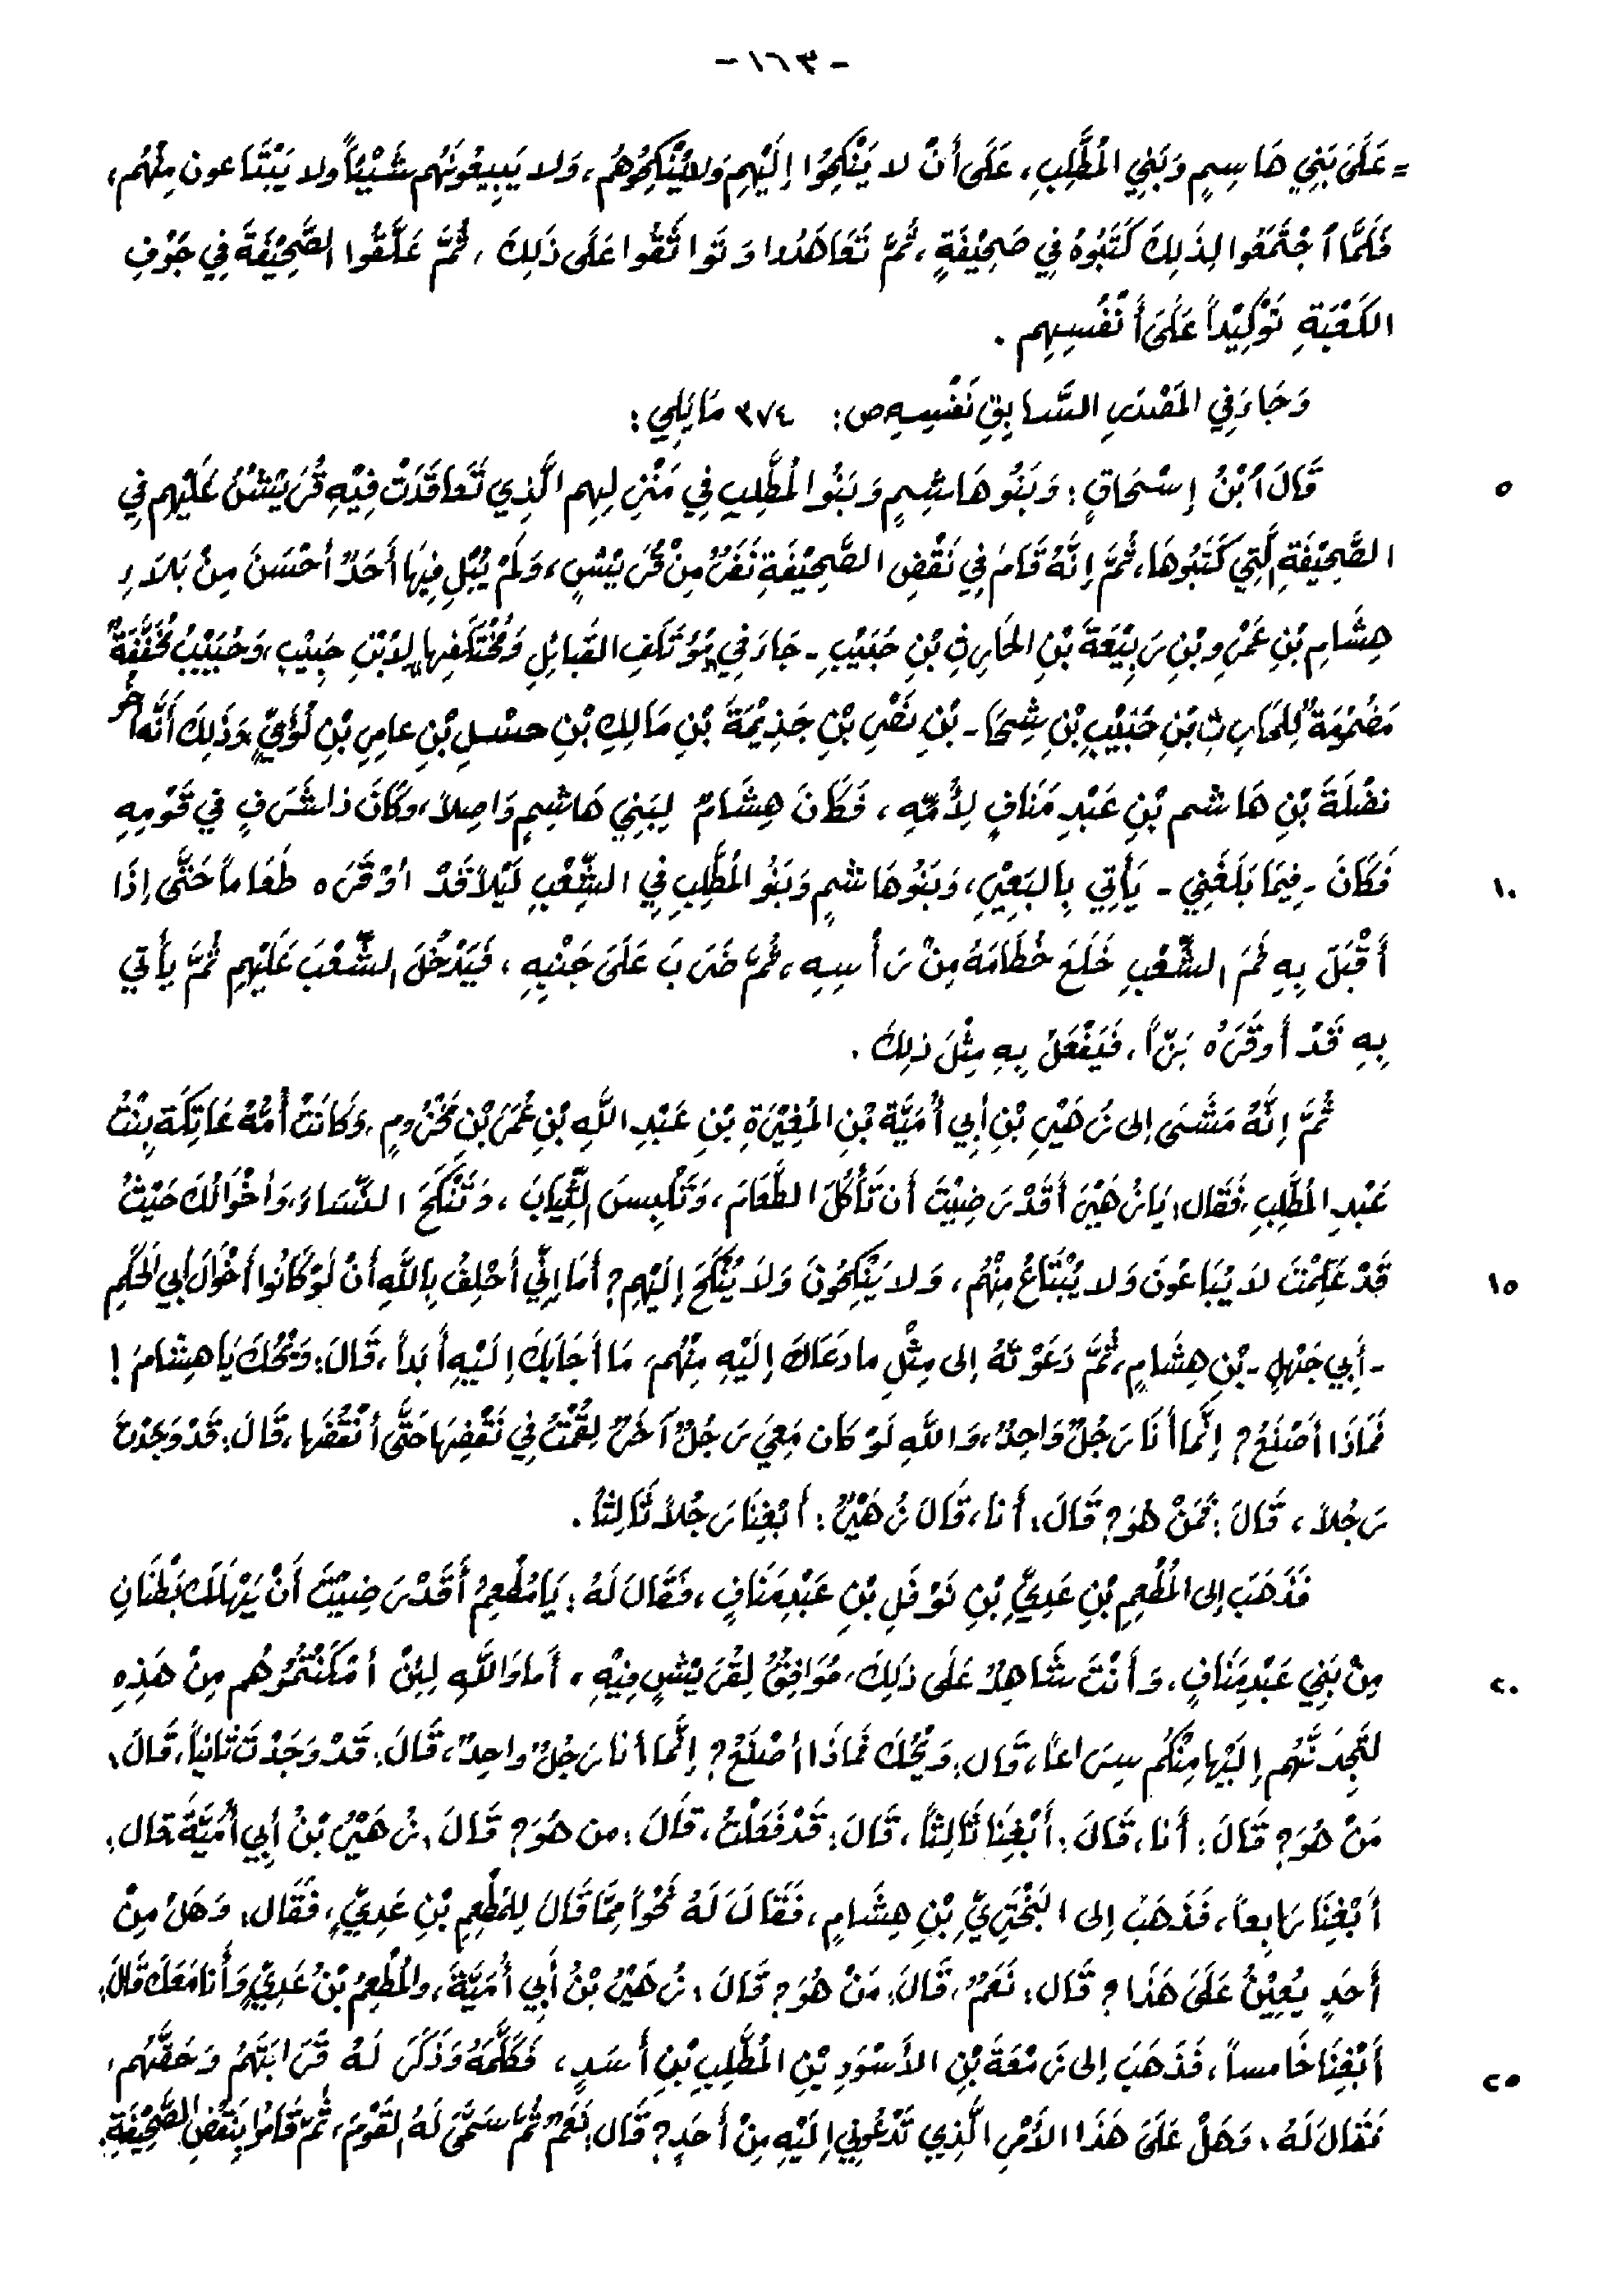 - ١٦٣ -
= عَلَى بَنِي هَاسِمٍ وَبَنِي المُطَّلِبِ، عَلَى أَنْ لا يَنْكِحُوا إِلَيْهِم وَلا يُنْكِحُوهُم، وَلا يَبِيعُونَهُم شَيْئاً ولا يَبْتَاعون مِنْهُم،
فَلَمَّا ٱجْتَمَعُوا لِذَلِكَ كَتَبُوهُ فِي صَحِيْفَةٍ، ثُمَّ تَعَاهَدُوا وَتَواثَقُوا عَلَى ذَلِكَ، ثُمَّ عَلَّقُوا الصَّحِيْفَةَ فِي جَوْفِ
الكَعْبَةِ تَوْكِيْداً عَلَى أَنْفُسِهِم .
وَجَاءَ فِي المَصْدَرِ السَّابِقِ نَفْسِهِ ص: ٣٧٤ مَا يَلِي:
٥ قَالَ ٱبْنُ إِسْحَاقٍ: وَبَنُو هَاشِمٍ وَبَنُو المُطَّلِبِ فِي مَنْزِلِهِم الَّذِي تَعَاقَدَتْ فِيْهِ قُرَيْشٌ عَلَيْهِم فِي
الصَّحِيْفَةِ الَّتِي كَتَبُوهَا، ثُمَّ إِنَّهُ قَامَ فِي نَقْضِ الصَّحِيْفَةِ نَفَرٌ مِنْ قُرَيْشٍ، وَلَمْ يُبْلِ فِيْهَا أَحَدٌ أَحْسَنَ مِنْ بَلَاءِ
هِشَامِ بْنِ عَمْرِو بْنِ رَبِيْعَةَ بْنِ الحَارِثِ بْنِ حُبَيْبٍ - جَاءَ فِي مُؤْتَلَفِ القَبَائِلِ وَمُخْتَلَفِها لِابْنِ حَبِيْبٍ، وَحُبَيْبُ مُخَفَّفَةٌ
مَضْمُوْمَةٌ لِلحَارِثِ بْنِ حُبَيْبِ بْنِ شِحَا - بْنِ نَصْرِ بْنِ جَذِيْمَةَ بْنِ مَالِكِ بْنِ حسْلِ بْنِ عامِرِ بْنِ لُؤَيٍّ، وَذَلِكَ أَنَّهُ أَخُو
نضْلَةَ بْنِ هَاشمِ بْنِ عَبْدِ مَنَافٍ لِأُمِّهِ، فَكَانَ هِشَامٌ لِبَنِي هَاشِمٍ وَاصِلاً، وكَانَ ذا شَرَفٍ في قَوْمِهِ
١٠ فَكَانَ - فِيْمَا بَلَغَنِي - يَأْتِي بِالبَعِيْرِ، وَبَنُو هَاشمٍ وَبَنُو المُطَّلِبِ فِي الشِّعْبِ لَيْلاً قَدْ أوْقَرَه طَعَاماً حَتَّى إِذَا
أَقْبَلَ بِهِ فَمَ الشِّعْبِ خَلَعَ خُطَامَهُ مِنْ رَأْسِهِ، ثُمَّ ضَرَبَ عَلَى جَنْبِهِ، فَيَدْخُلَ الشِّعْبَ عَلَيْهِم ثُمَّ يأْتي
بِهِ قَدْ أَوقَرَهُ بَزّاً، فَيَفْعَلُ بِهِ مِثْلَ ذلِكَ .
ثُمَّ إِنَّهُ مَشَى إلى زُهَيْرِ بْنِ أَبِي أُمَيَّةَ بْنِ المُغِيْرَةِ بْنِ عَبْدِ اللَّهِ بْنِ عُمَرَ بْنِ مَخْزُومٍ، وَكَانَتْ أُمُّهُ عَاتِكَةَ بِنْتُ
عَبْدِ المُطَّلِبِ، فَقَال: يَا زُهَيْرُ أَقَدْ رَضِيْتَ أَن تَأْكُلَ الطَّعَامَ، وَتَلْبِسَ الثِّيَابَ، وَتَنْكِحَ النِّسَاءَ، وَأَخْوَالُكَ حَيْثُ
١٥ قَدْ عَلِمْتَ لا يُبَاعُونَ وَلا يُبْتَاعُ مِنْهُم، وَلا يَنْكِحُونَ وَلَا يُنْكَحُ إِلَيْهِم؟ أَمَا إِنِّي أَحْلِفُ بِاللَّهِ أَنْ لَوْ كَانُوا أَخْوَالَ أَبي الحَكَمِ
- أَبِي جَهْلٍ - بْنِ هِشَامٍ، ثُمَّ دَعَوْتَهُ إلى مِثْلِ ما دَعَاكَ إِلَيْهِ مِنْهُم، مَا أَجَابَكَ إِلَيْهِ أَبَداً، قَالَ: وَيْحُكَ يَا هِشَامَ !
فَمَاذَا أَصْنَعُ؟ إِنَّمَا أَنَا رَجُلٌ وَاحِدٌ، وَاللَّهِ لَوْ كَان مَعِيَ رَجُلٌ آخَرُ لقُمْتُ فِي نَقْضِهَا حَتَّى أنْقُضَها، قَالَ: قَدْ وَجَدْتَ
رَجُلاً، قَالَ: فَمَنْ هُوَ؟ قَالَ: أَنا، قَالَ زُهَيْرٌ: أَبْغِنَا رَجُلاً ثَالِثاً.
فَذَهَبَ إِلى المُطْعِمِ بْنِ عَدِيِّ بْنِ نَوْفَلِ بْنِ عَبْدِ مَنَافٍ، فَقَالَ لَهُ: يَا مُطْعِمُ أَقَدْ رَضِيْتَ أَنْ يَهْلَكَ بَطْنَانِ
٢٠ مِنْ بَنِي عَبْدِ مَنَافٍ، وَأَنْتَ شَاهِدٌ عَلَى ذَلِكَ، مُوَافِقٌ لِقُرَيْشٍ فِيْهِ، أَما وَاللَّهِ لِئِنْ أمْكَنْتُمُوْهُم مِنْ هَذِهِ
لَتَجِدَنَّهُم إِلَيْها مِنْكُم سِرَاعاً، قَال: وَيْحُكَ فَمَاذَا أصْنَعُ؟ إِنَّمَا أَنا رَجُلٌ واحِدٌ، قَالَ: قَدْ وَجَدْتَ ثانِياً، قَالَ:
مَنْ هُوَ؟ قَالَ: أَنا، قَالَ: أَبْغِنَا ثَالِثاً، قَالَ: قَدْ فَعَلْتُ، قَالَ: من هُوَ؟ قَالَ: زُهَيْرُ بْنُ أَبِي أُمَيَّةَ قال:
أَبْغِنَا رَابِعاً، فَذَهَبَ إلى البَخْتَرِيِّ بْنِ هِشَامٍ، فَقَالَ لَهُ نَحْواً مِمَّا قَالَ لِلمُطْعِمِ بْنِ عَدِيٍّ، فَقَال: وَهَلْ مِنْ
أَحَدٍ يُعِيْنُ عَلَى هَذَا؟ قَال: نَعَمْ، قَالَ: مَنْ هُوَ؟ قَالَ: زُهَيْرُ بْنُ أَبِي أُمَيَّةَ، والمُطْعِمُ بْنُ عَدِيٍّ وَأَنا مَعَكَ قَالَ:
٢٥ أَبْغِنَا خَامِساً، فَذَهَبَ إلى زَمْعَةَ بْنِ الأَسْوَدِ بْنِ المُطَّلِبِ بْنِ أَسَدٍ، فَكَلَّمَهُ وَذَكَرَ لَهُ قَرَابَتَهُمْ وَحَقَّهُم،
فَقَالَ لَهُ: وَهَلْ عَلَى هَذَا الأَمْرِ الَّذِي تَدْعُونِي إِلَيْهِ مِنْ أَحَدٍ؟ قَال: نَعَمْ ثُمَّ سَمَّى لَهُ القَوْمَ، ثُمَّ قَامُوا بِنَقْضِ الصَّحِيْفَةِ.